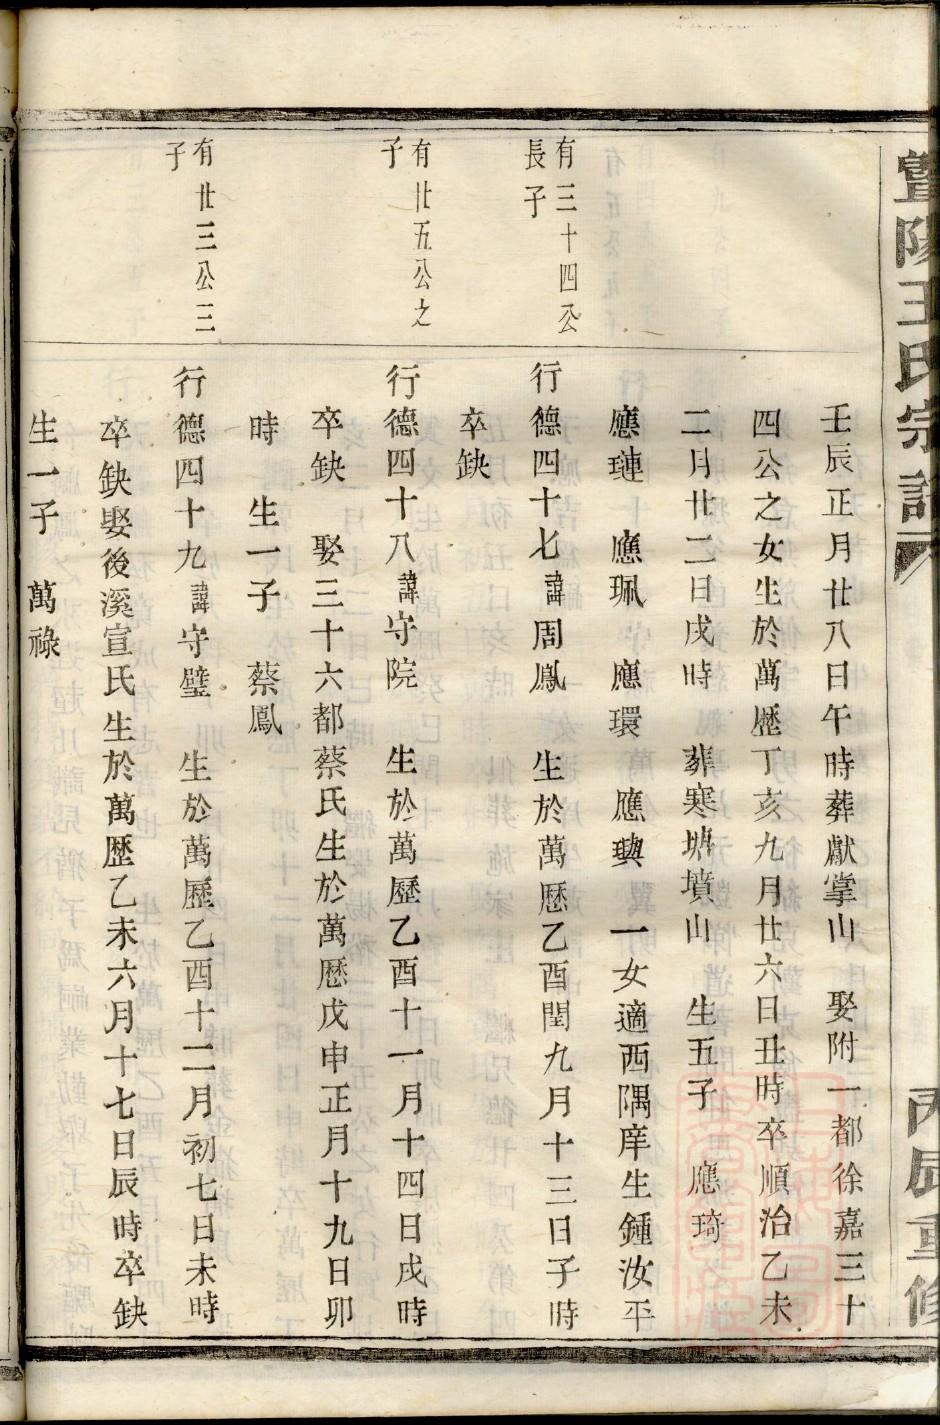 暨陽王氏宗譜
丙辰重修
壬辰正月廿八日午時葬獻掌山　娶附一都徐嘉三十
四公之女生於萬歷丁亥九月廿六日丑時卒順治乙未
二月廿二日戌時　葬寒塘墳山　生五子　應琦
應璉　應珮　應環　應璵　一女適西隅庠生鍾汝平
有三十四公
長子
行德四十七諱周鳳　生於萬歷乙酉閏九月十三日子時
卒缺
有廿五公之
子
行德四十八諱守院　生於萬歷乙酉十一月十四日戌時
卒缺　娶三十六都蔡氏生於萬歷戊申正月十九日卯
時　生一子　蔡鳳
有廿三公三
子
行德四十九諱守璧　生於萬歷乙酉十二月初七日未時
卒缺娶後溪宣氏生於萬歷乙未六月十七日辰時卒缺
生一子　萬祿